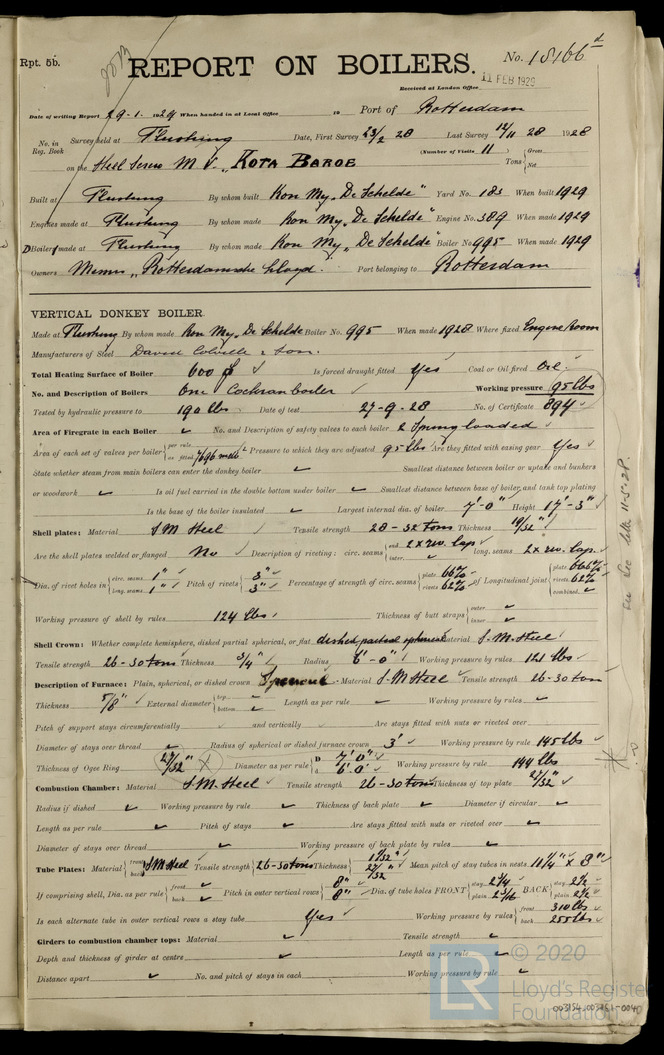 Rpt. 5b.
REPORT ON BOILERS.
No. 18166 d
11 FEB 1929
Received at London Office
Date of writing Report 29-1-1929 When handed in at Local Office 19 Port of Rotterdam
No. in Reg. Book Survey held at Flushing Date, First Survey 23/2 28 Last Survey 12/11 28 1928
on the Steel Screw M V. „Kota Baroe (Number of Visits 11) Tons { Gross Net
Built at Flushing By whom built Kon My „De Schelde" Yard No. 183 When built 1929
Engines made at Flushing By whom made Kon My „De Schelde" Engine No. 389 When made 1929
D Boiler made at Flushing By whom made Kon My „De Schelde" Boiler No 995 When made 1929
Owners Messrs „Rotterdamsche Lloyd. Port belonging to Rotterdam
VERTICAL DONKEY BOILER.
Made at Flushing By whom made Kon My „De Schelde Boiler No. 995 When made 1928 Where fixed Engine Room
Manufacturers of Steel David Colville & Son.
Total Heating Surface of Boiler 600 Is forced draught fitted Yes Coal or Oil fired Oil.
No. and Description of Boilers One Cochran boiler Working pressure 95 lbs
Tested by hydraulic pressure to 190 lbs Date of test 27-9-28 No. of Certificate 894
Area of Firegrate in each Boiler No. and Description of safety valves to each boiler 2 Spring loaded
Area of each set of valves per boiler { per rule as fitted 7696 Pressure to which they are adjusted 95 lbs Are they fitted with easing gear Yes
State whether steam from main boilers can enter the donkey boiler Smallest distance between boiler or uptake and bunkers
or woodwork Is oil fuel carried in the double bottom under boiler Smallest distance between base of boiler and tank top plating
Is the base of the boiler insulated Largest internal dia. of boiler 7'-0" Height 17'-3"
Shell plates: Material S M Steel Tensile strength 28-32 tons Thickness 19/32"
Are the shell plates welded or flanged No Description of riveting: circ. seams { end 2 x riv. lap inter. long. seams 2 x riv. lap.
Dia. of rivet holes in { circ. seams 1" long. seams 1" Pitch of rivets { 3" 3" Percentage of strength of circ. seams { plate 66% rivets 62% of Longitudinal joint { plate 66% rivets 62% combined
Working pressure of shell by rules 124 lbs Thickness of butt straps { outer inner
Shell Crown: Whether complete hemisphere, dished partial spherical, or flat dished partial spherical Material S. M. Steel
Tensile strength 26-30 tons Thickness 3/4" Radius 6'-0" Working pressure by rules 121 lbs
Description of Furnace: Plain, spherical, or dished crown Material S M Steel Tensile strength 26-30 tons
Thickness 5/8" External diameter { top bottom Length as per rule Working pressure by rules
Pitch of support stays circumferentially and vertically Are stays fitted with nuts or riveted over
Diameter of stays over thread Radius of spherical or dished furnace crown 3' Working pressure by rule 145 lbs
Thickness of Ogee Ring 27/32" Diameter as per rule { D 7'0" d 6'0" Working pressure by rule 144 lbs
Combustion Chamber: Material S. M. Steel Tensile strength 26-30 tons Thickness of top plate 27/32"
Radius if dished Working pressure by rule Thickness of back plate Diameter if circular
Length as per rule Pitch of stays Are stays fitted with nuts or riveted over
Diameter of stays over thread Working pressure of back plate by rules
Tube Plates: Material { front back S M Steel Tensile strength { 26-30 tons Thickness { 27/32" Mean pitch of stay tubes in nests 11 1/4" x 8"
If comprising shell, Dia. as per rule { front back Pitch in outer vertical rows { 8" 8" Dia. of tube holes FRONT { stay 2 1/4 plain 2 3/16 BACK { stay 2 1/2 plain 2 1/2
Is each alternate tube in outer vertical rows a stay tube Yes Working pressure by rules { front 310 lbs back 255 lbs
Girders to combustion chamber tops: Material Tensile strength
Depth and thickness of girder at centre Length as per rule
Distance apart No. and pitch of stays in each Working pressure by rules
11-5-28.
LR
© 2020
Lloyd's Register
Foundation
003154-003161-0040